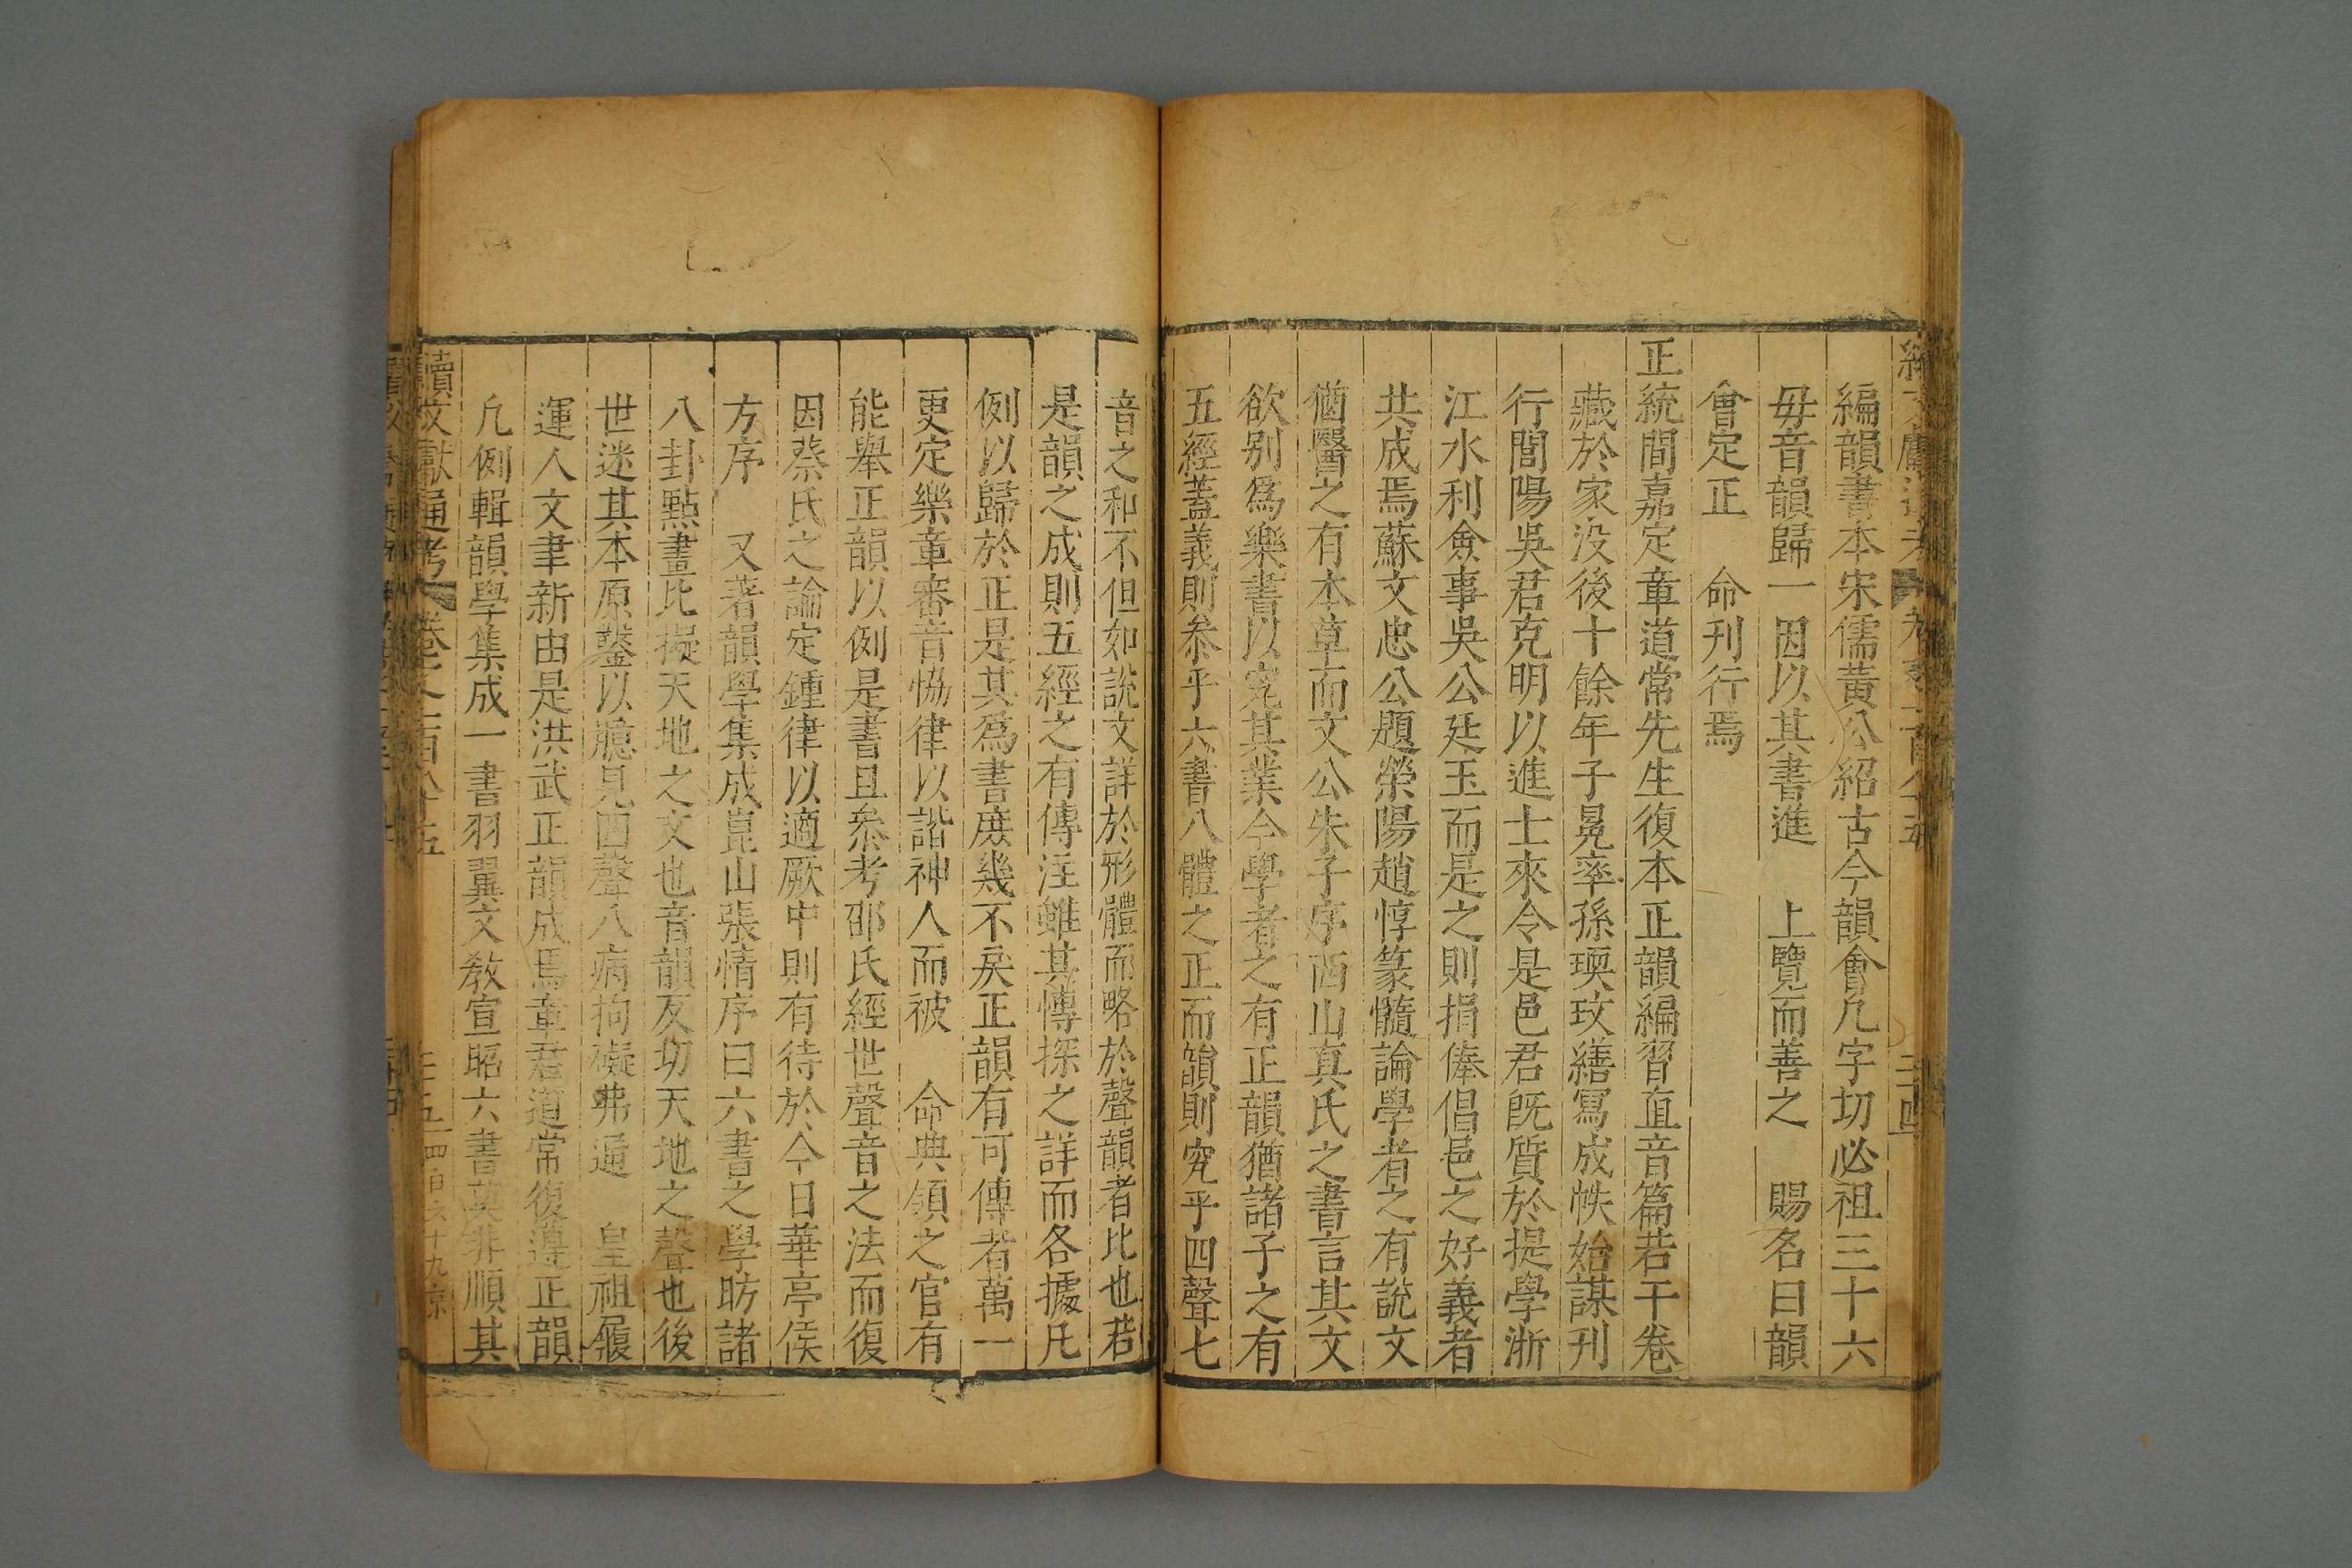 編韻書本宋儒黃公紹古今韻會凡字切必祖三十六
毋音韻歸一因以其書進 上覽而善之 賜名曰韻
會定正 命刊行焉
正統間嘉定章道常先生復本正韻編習直音篇若干卷
藏於家没後十餘年子冕率孫瑛玟繕寫成帙始謀刊
行閩陽吳君克明以進士來令是邑君旣質於提學浙
江水利僉事吳公廷玉而是之則捐俸倡邑之好義者
共成焉蘇文忠公題榮陽趙惇篆髓論學者之有說文
猶醫之有本草而文公朱子序西山真氏之書言其文
欲别爲樂書以究其業今學者之有正韻猶諸子之有
五經蓋義則叅乎六書八體之正而韻則究乎四聲七
音之和不但如說文詳於形體而略於聲韻者比也若
是韻之成則五經之有傳注雖其傳採之詳而各據凡
例以歸於正是其爲書庶幾不戾正韻有可傳者萬一
更定樂章審音恊律以諧神人而被 命典領之官有
能舉正韻以例是書且叅考邵氏經世聲音之法而復
因蔡氏之論定鍾律以適厥中則有待於今日華亭侯
方序 又著韻學集成崑山張情序曰六書之學昉諸
八卦點畫比擬天地之文也音韻反切天地之聲也後
世迷其本原鑿以臆見四聲八病拘礙弗通 皇祖履
運人文聿新由是洪武正韻成焉章君道常復遵正韻
凡例輯韻學集成一書羽翼文教宣昭六書莫非順其
續文獻通考 卷之一百八十五